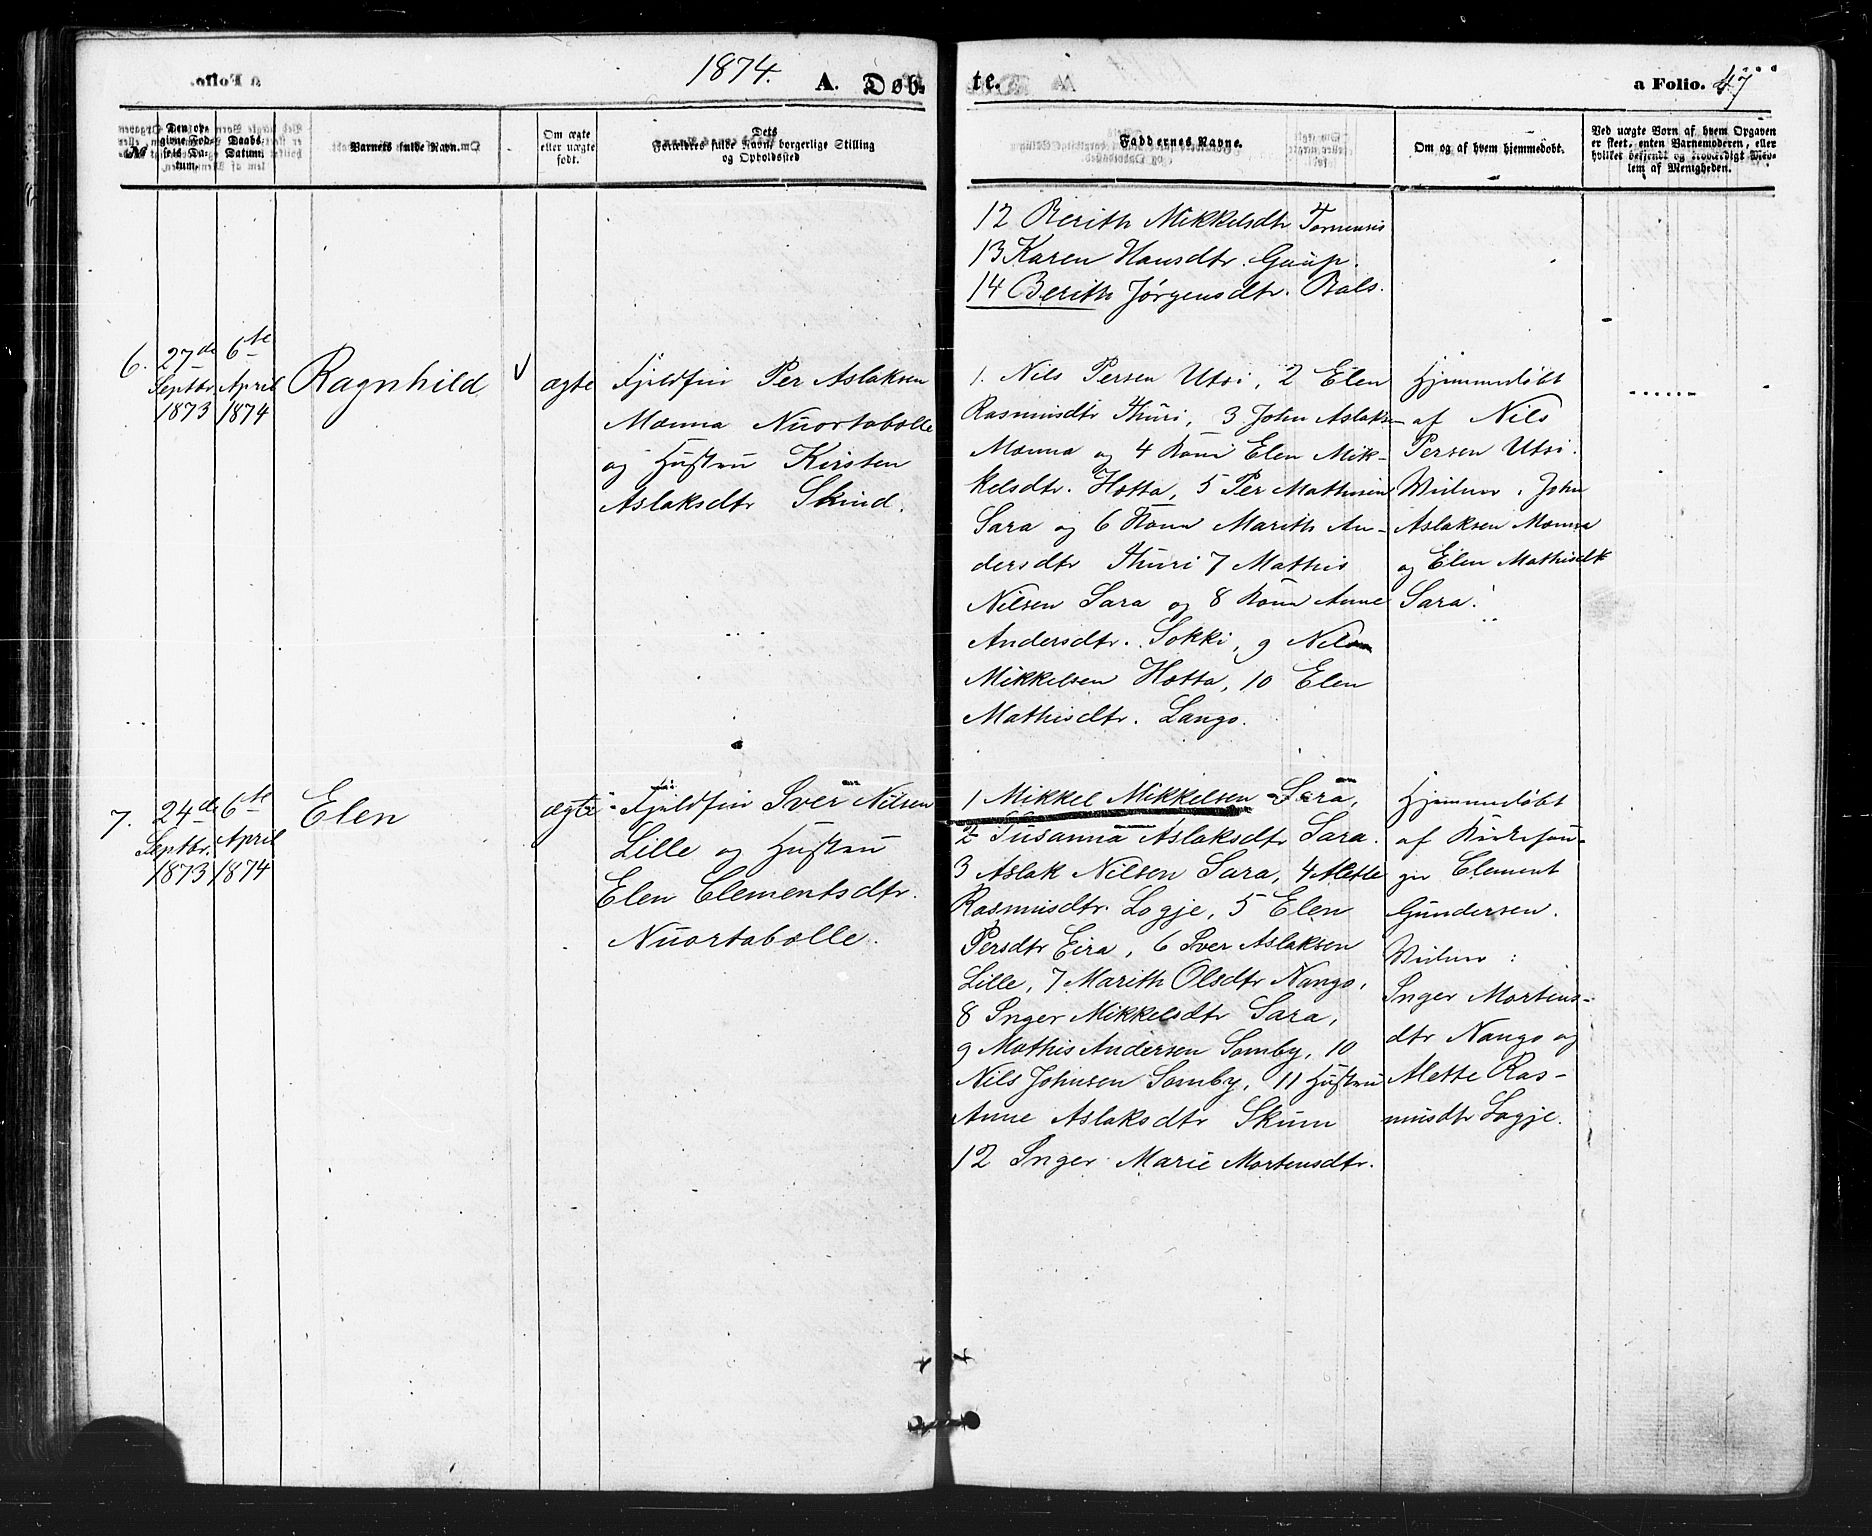 1874.
A. Døb-
te.
a Folio. 47
№
Den op-
givne Fød-
sels Da-
tum.
Daabs-
Datum.
Barnets fulde Navn.
Om ægte
eller uægte
født.
Dets
Forældres fulde Navne borgerlige Stilling
og Opholdssted
Faddernes Navne.
Om og af hvem hjemmedøbt.
Ved uægte Børn af hvem Opgaven
er skeet, enten Barnemoderen, eller
hvilket bekjendt og troværdigt Med-
lem af Menigheden.
12 Berith Mikkelsdtr Tornensis
13 Karen Hansdtr. Gaup.
14 Berith Jørgensdtr. Bals.
6.
27de
Septbr.
1873
6te
April
1874
Ragnhild
ægte
Fjeldfin Per Aslaksen
Mænna Nuortabælle
og Hustru Kirsten
Aslaksdtr
1. Nils Persen Utsi, 2 Elen
Rasmusdtr Thuri, 3 John Aslaksen
Mænna og 4 Kone Elen Mik-
kelsdtr. Hætta, 5 Per Mathisen
Sara og 6 Kone Marith An-
dersdtr Thuri 7 Mathis
Nilsen Sara og 8 Kone Anne
Andersdtr. Sokki, 9 Nils
Mikkelsen Hætta, 10 Elen
Mathisdtr. Lango.
Hjemmedøbt
af Nils
Persen Utsi.
Vidner: John
Aslaksen Mænna
og Elen Mathisdtr
Sara.
7.
24de
Septbr.
1873
6te
April
1874
Elen
ægte
Fjeldfin Iver Nilsen
Lille og Hustru
Elen Clementsdtr.
Nuortabælle.
1 Mikkel Mikkelsen Sara,
2 Susanna Aslaksdtr Sara.
3 Aslak Nilsen Sara, 4 Alette
Rasmusdtr. Logje, 5 Elen
Persdtr Eira, 6 Iver Aslaksen
Lille, 7 Marith Olsdtr Nango,
8 Inger Mikkelsdtr Sara,
9 Mathis Andersen Somby, 10
Nils Johnsen Somby, 11 Hustru
Anne Aslaksdtr Skum
12 Inger Marie Mortensdtr.
Hjemmedøbt
af Kirkesan-
ger Clement
Gundersen.
Vidner:
Inger Mortens-
dtr Nango og
Alette Ras-
musdtr Logje.